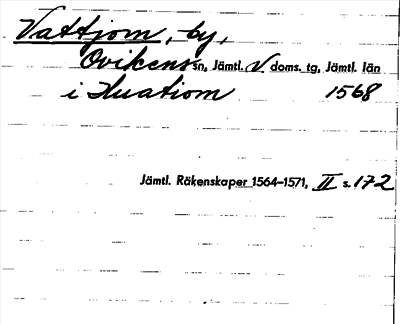 Vattjom, by,
Ovikens sn, Jämtl. V doms. tg, Jämtl. län
i Huatiom 1568
Jämtl. Räkenskaper 1564–1571, II s. 172